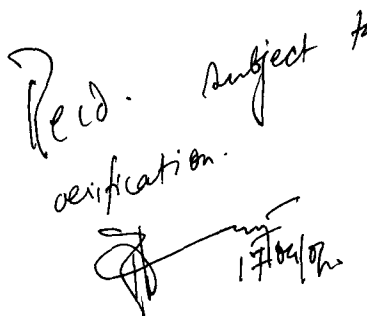 Recd. subject to
verification.